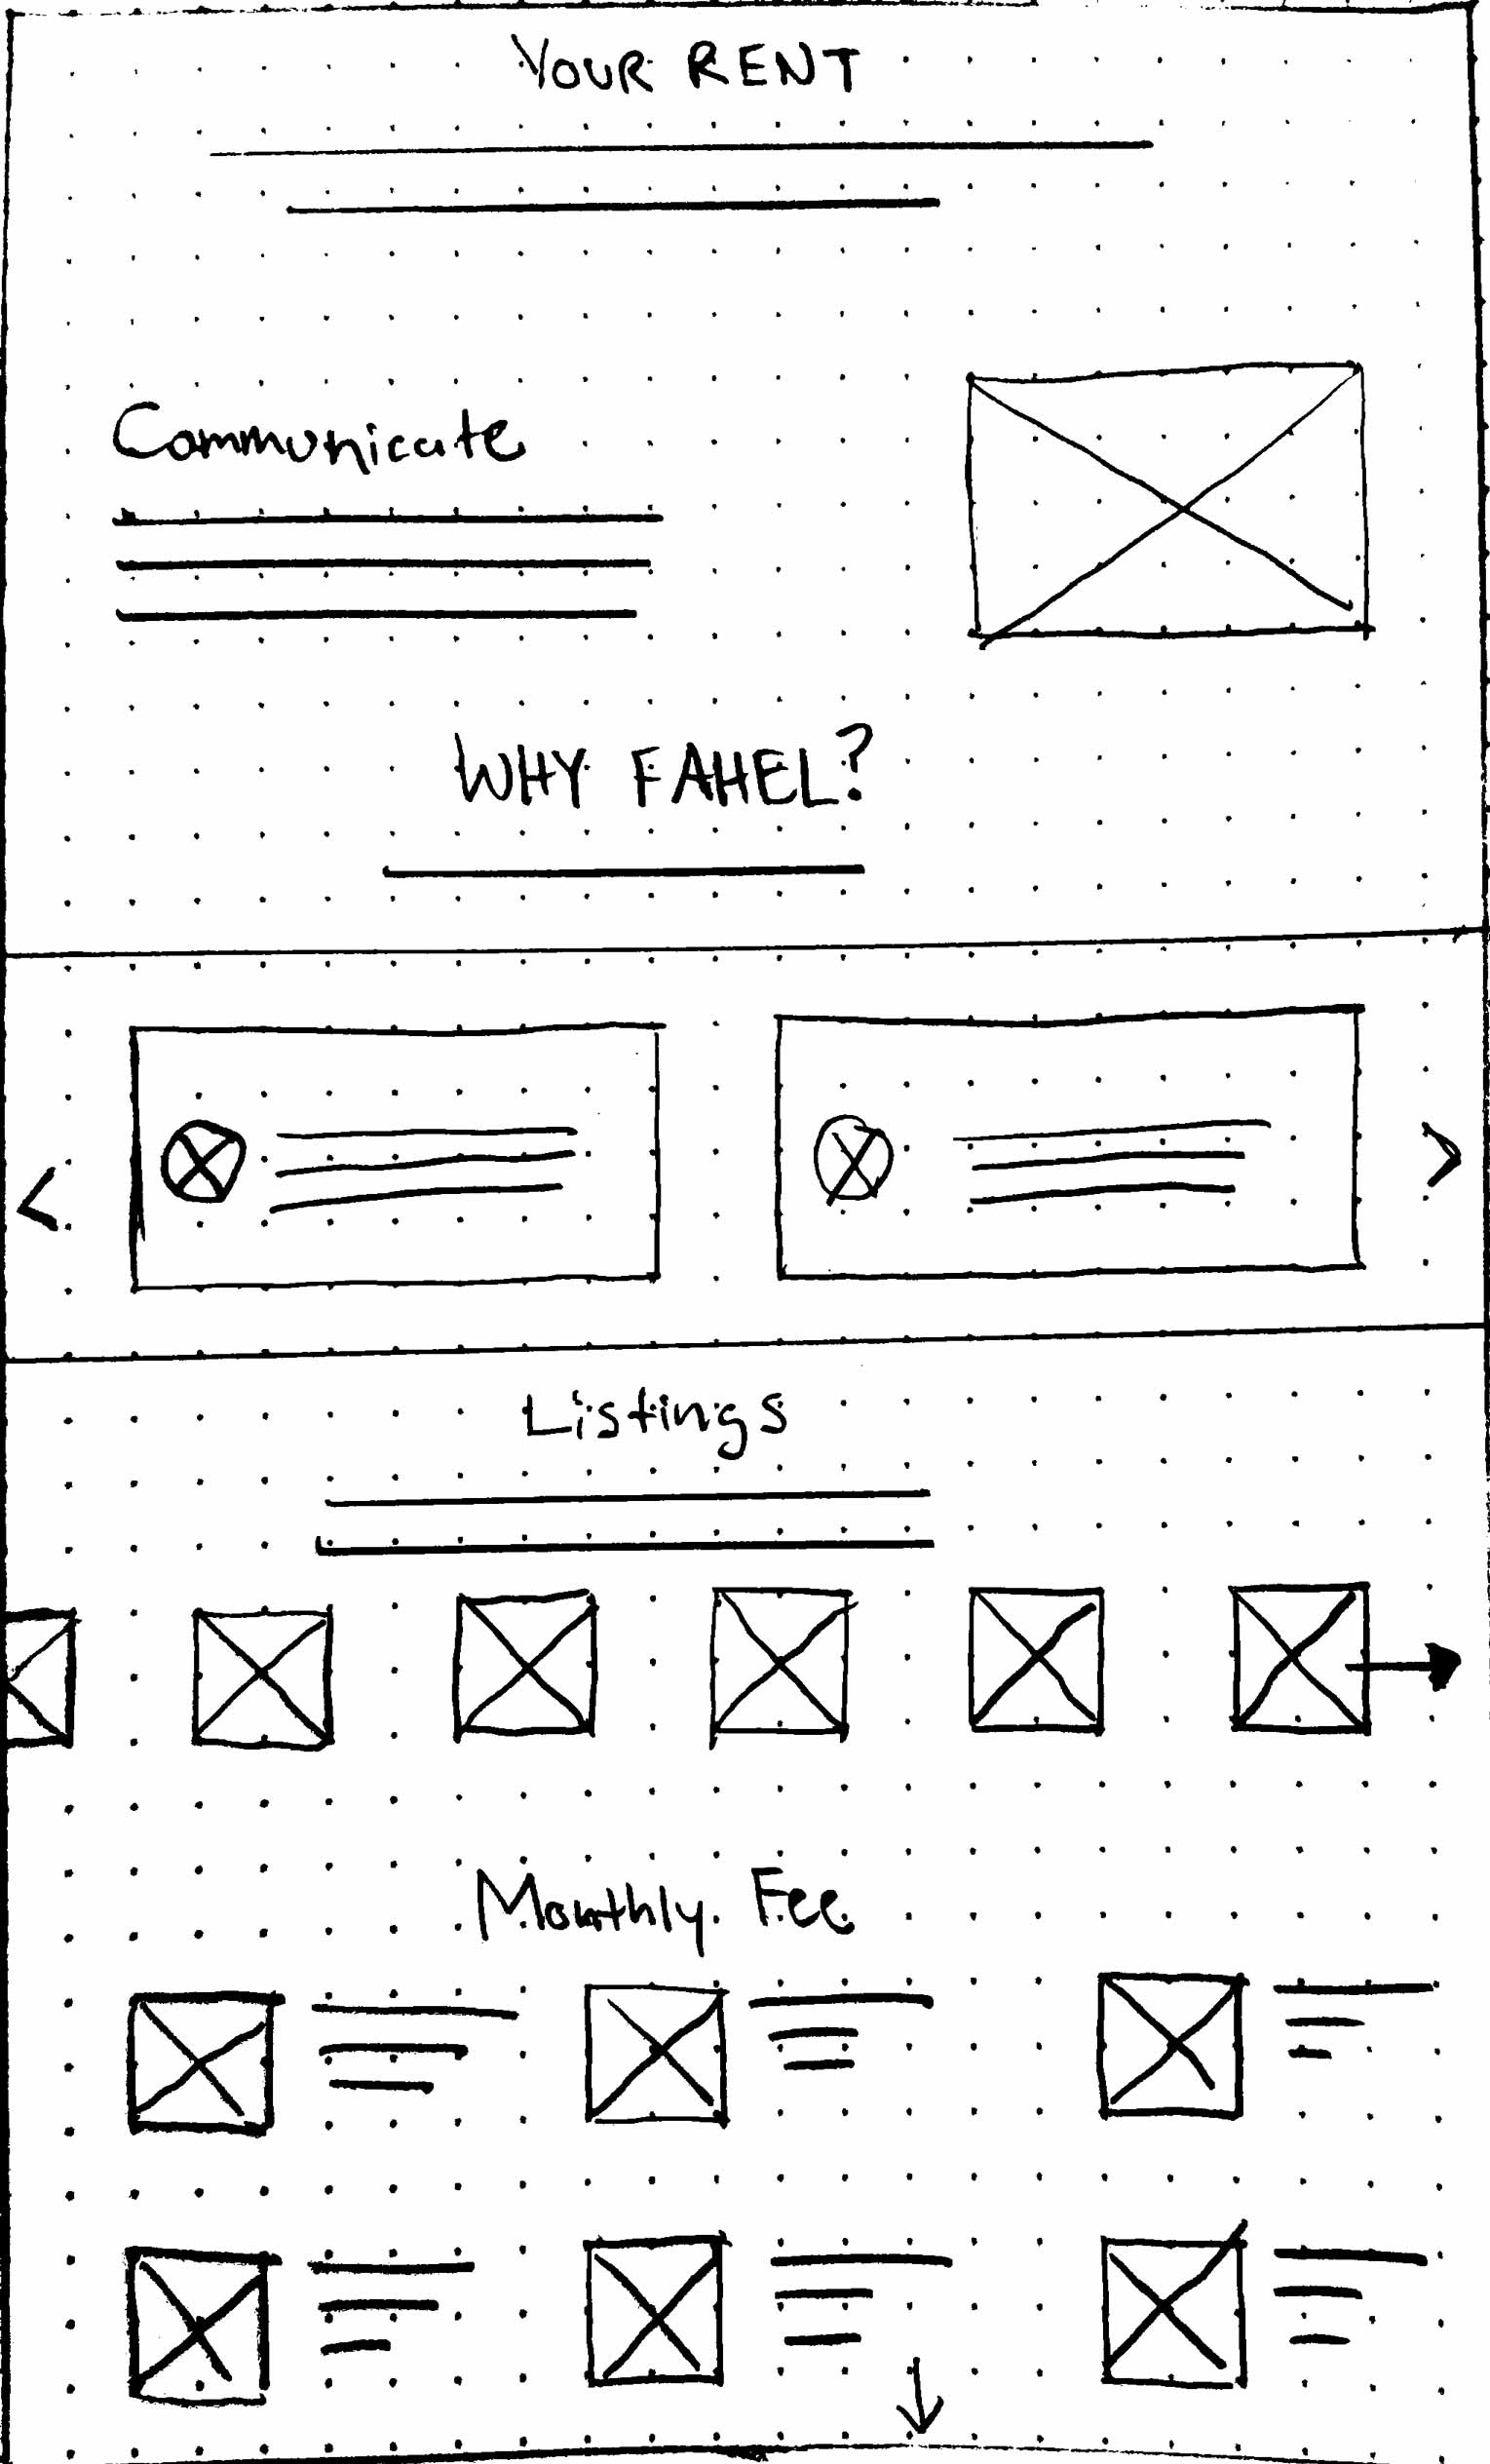 YOUR RENT
Communicate
WHY FAHEL?
<
>
Listings
Monthly Fee